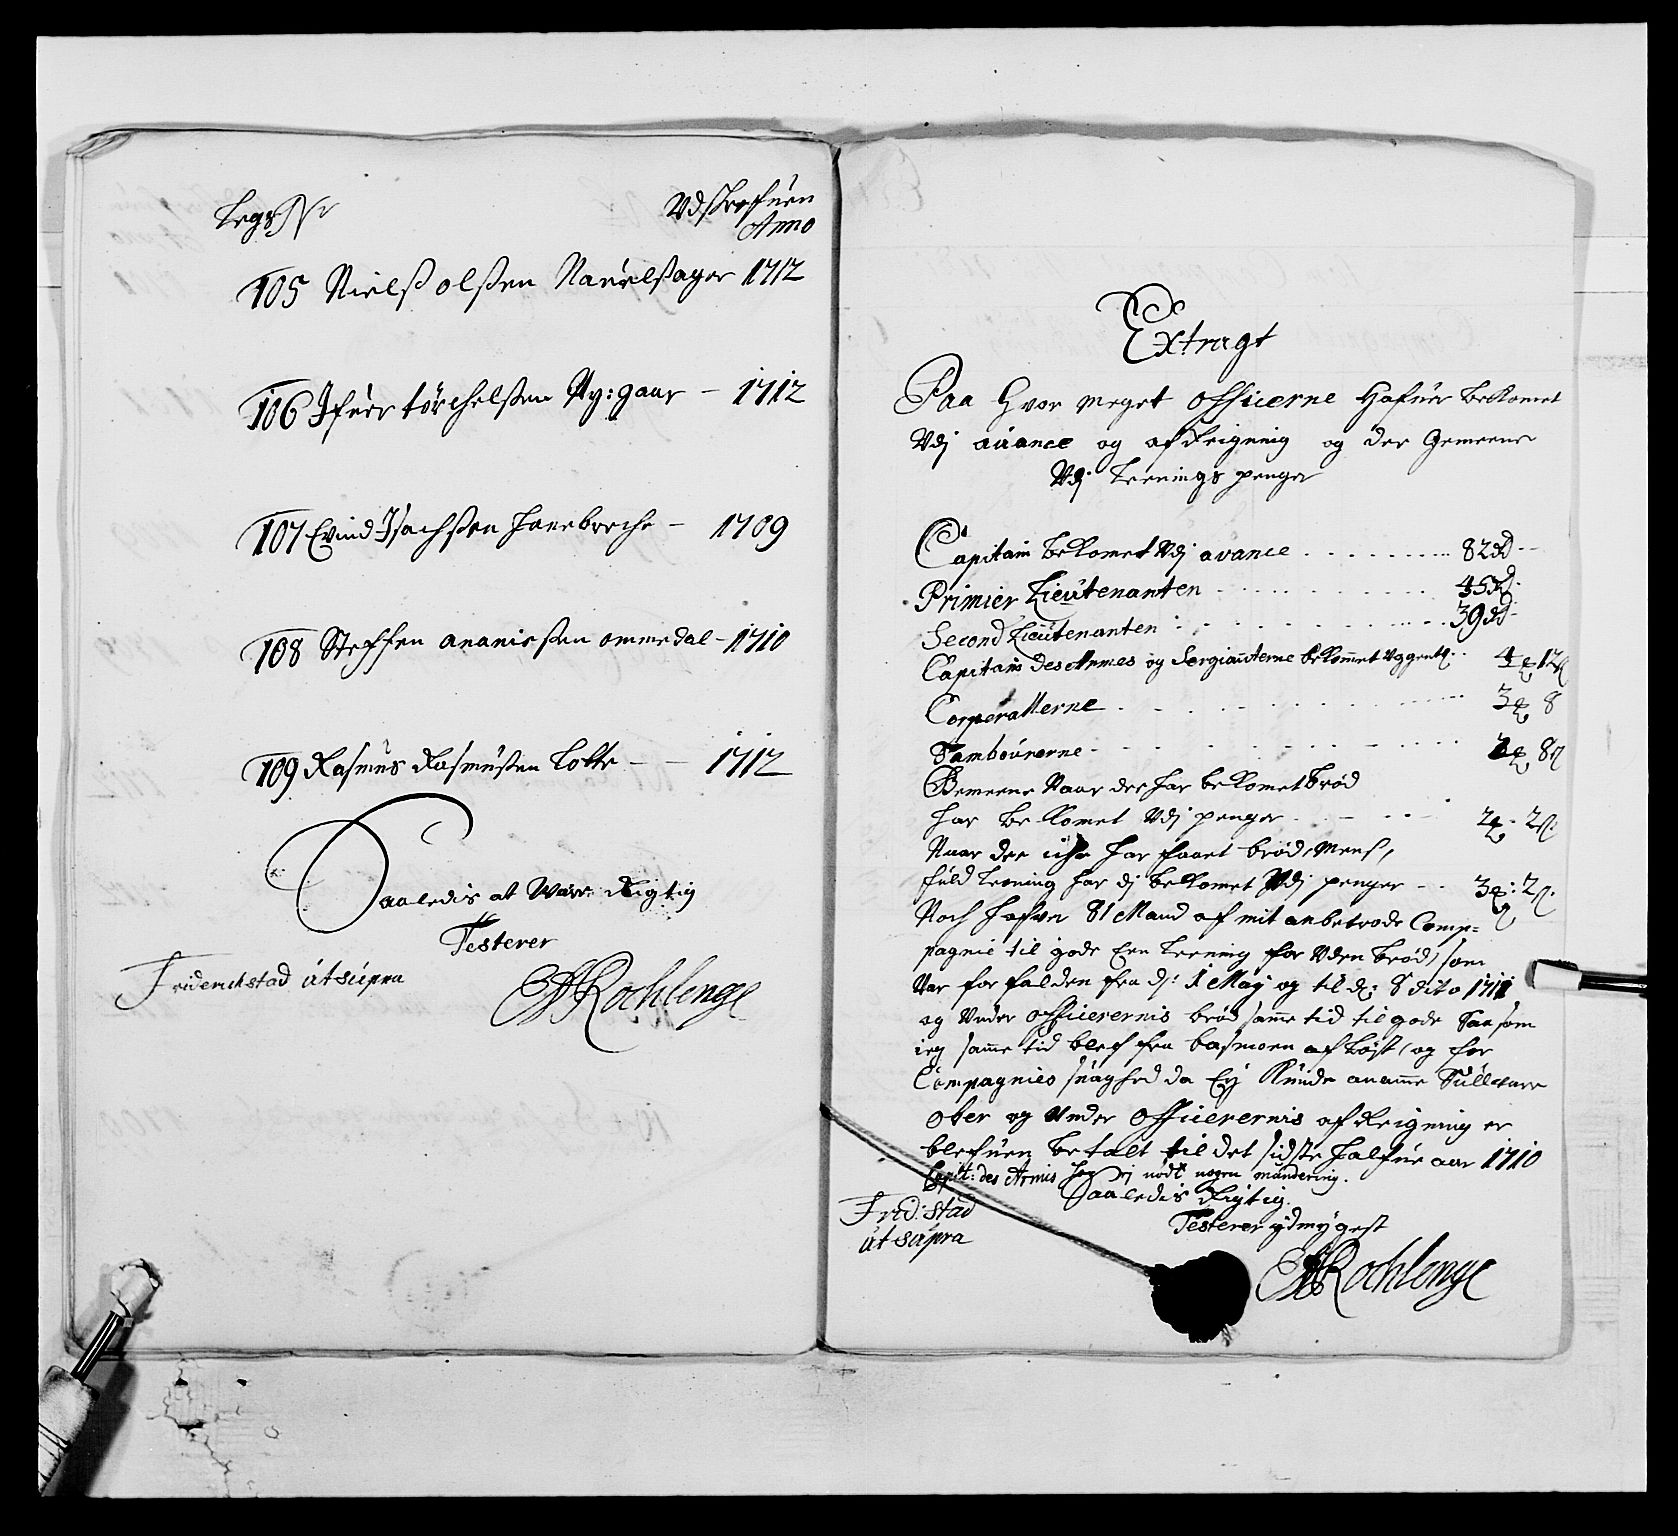 Legs Nr
Udskrefuen
Anno
105 Nielß olßen Navelsager 1712
106 Ifuer törchelßen Ny:gaar – 1712
107 Evind Isachßen – 1709
108 Steffen ananießen ommedal – 1710
109 Rasmus Rasmußen Lotte – – 1712
Saaledis at Være Rigtig
Testerer
Friderichstad ut supra
Rochlenge
Extragt
Paa Hvor meget officerne Hafuer bekomet
Udj avance og afreigning og der Gemeene
Udj Leenings penger
Capitain bekomet Udj avance 82 Rd
Primier Lieutenanten 45 Rd
Second Lieutenanten 39 Rd
Capitain des Armes og Sergianterne bekommet Uggentl. 4 12
Corporallerne 3 8
Tambourerne 8
Gemeene Naar der har bekomet brød
har bekomet Udj penger 2 2
Naar der icke har faaet brød, Mens,
fuld Leening har dj bekomet Udj penger 3 2
Noch hafver 81 Mand af mit anbetrode Comp=
pagnie til gode Een Leening for Uden brød, som
Var forfalden fra d: 1 Maij og til d: 8 dito 1711
og Under officerernis brød samme tid til gode Saasom
ieg samme tid blef fra basmoen afløst, og for
Compagnies suaghed da Eij kunde anamme
Ober og Under officerernis afreigning er
blefuen betalt til det sidste halfue aar 1710
Capit: des Armis har ej nødt nogen mundering.
Saaledis Rigtig
Testerer ydmygest
Frid: stad
ut supra
Rochlenge